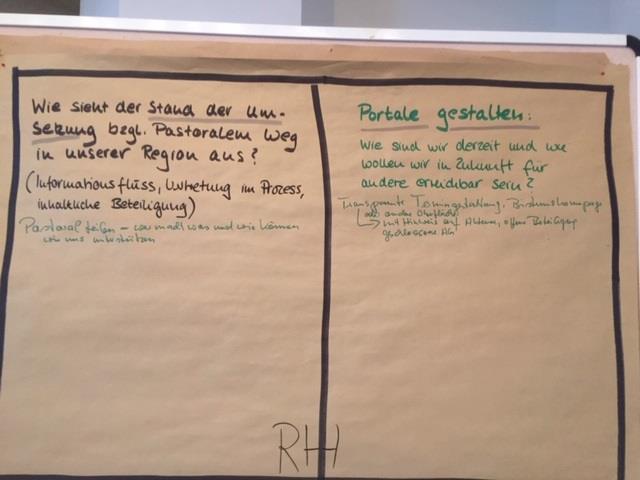 Wie sieht der Stand der Um-
setzung bzgl. Pastoralem Weg
in unserer Region aus?
(Informationsfluss, Vertretung im Prozess,
inhaltliche Beteiligung)
Pastoral teilen – wer macht was und wie können
wir uns unterstützen
Portale gestalten:
Wie sind wir derzeit und wie
wollen wir in Zukunft für
andere erreichbar sein?
Transparente Termingestaltung, Bistumshomepage
oder andere
mit Hinweis auf offene Beteiligung
geschlossene AG
RH